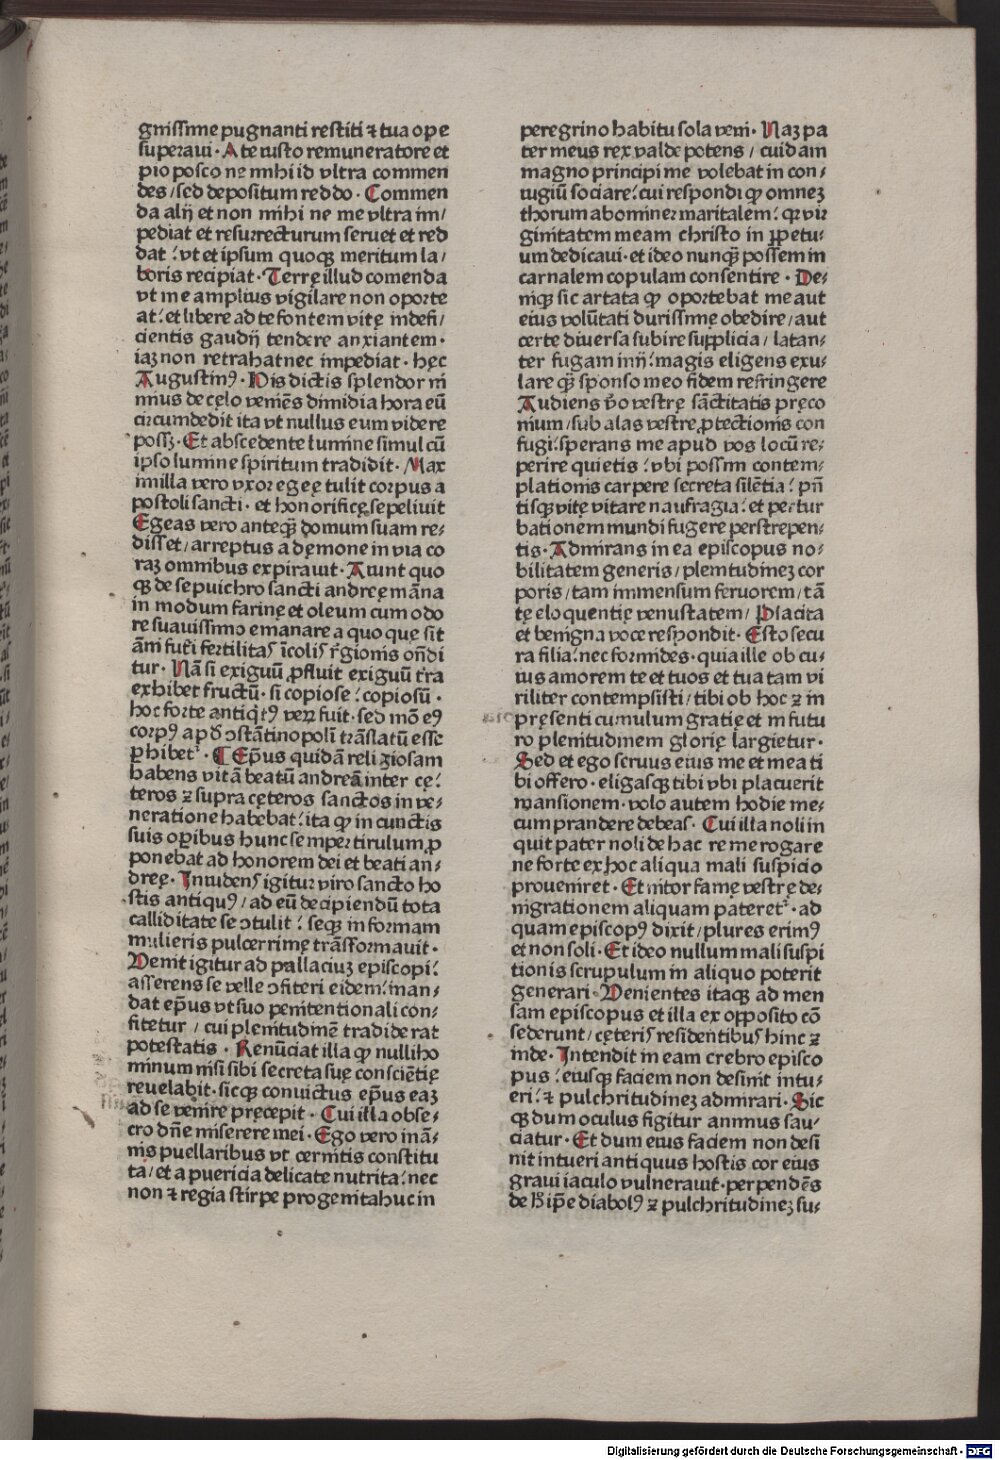 gnissime pugnanti restiti ⁊ tua ope
superaui· A te iusto remuneratore et
pio posco ne mihi id vltra commen
des/sed depositum reddo· Commen
da alij et non mihi ne me vltra im/
pediat et resurrecturum seruet et red
dat: vt et ipsum quoqꝫ meritum la/
boris recipiat· Terrę illud comenda
vt me amplius vigilare non oporte
at: et libere ad te fontem vitę indefi/
cientis gaudij tendere anxiantem·
iaꝫ non retrahat nec impediat· hęc
Augustinꝰ· His dictis splendor ni
mius de cęlo veniēs dimidia hora eū
circumdedit ita vt nullus eum videre
possꝫ· Et abscedente lumine simul cū
ipso lumine spiritum tradidit· Max
imilla vero vxor egeę tulit corpus a
postoli sancti· et honorificę sepeliuit
Egeas vero anteqꝫ̄ domum suam re/
disset/arreptus a dęmone in via co
raꝫ omnibus expirauit· Aiunt quo
qꝫ de sepulchro sancti andreę māna
in modum farinę et oleum cum odo
re suauissimo emanare a quo quę sit
āni futͥi fertilitas ĩcolis rͤgionis ondi
tur· Nā si exiguū ꝓfluit exiguū tͤra
exhibet fructū· si copiose: copiosū·
hoc forte antiqͥtꝰ veꝝ fuit· sed mō eꝰ
corpꝰ apð ↄstātinopolī trāslatū esse
ꝑhibetᷣ· ¶ Ep̄us quidā religiosam
habens vitā beatū andreā inter cę:
teros ⁊ supra cęteros sanctos in ve/
neratione habebat: ita ꝙ in cunctis
suis oꝑibus hunc semper titulum ꝓ
ponebat ad honorem dei et beati an/
dreę· Inuidens igitur viro sancto ho
stis antiquꝰ/ad eū decipiendū tota
calliditate se ↄtulit: seqꝫ in formam
mulieris pulcerrimę trāsformauit·
Venit igitur ad pallaciuꝫ episcopi:
asserens se velle ↄfiteri eidem: man/
dat ep̄us vt suo penitentionali con/
fitetur/ cui plenitudinē tradiderat
potestatis· Renūciat illa ꝙ nulli ho
minum nisi sibi secreta suę consciētię
reuelabit· sicqꝫ conuictus ep̄us eaꝫ
ad se venire pręcepit· Cui illa obse/
cro dn̄e miserere mei· Ego vero in ā/
nis puellaribus vt cernitis constitu
ta/et a puericia delicate nutrita: nec
non ⁊ regia stirpe progenita huc in
peregrino habitu sola veni· Naꝫ pa
ter meus rex valde potens/ cuidam
magno principi me volebat in con/
iugiū sociare: cui respondi ꝙ omneꝫ
thorum abominer maritalem: qꝛ vir
ginitatem meam christo in ꝑpetu/
um dedicaui· et ideo nunqꝫ̄ possem in
carnalem copulam consentire· De/
niqꝫ sic artata ꝙ oportebat me aut
eius volūtati durissimę obedire/aut
certe diuersa subire supplicia/ latan/
ter fugam inij: magis eligens exu/
lare qꝫ̄ sponso meo fidem refringere
Audiens v̊o vestrę sāctitatis pręco
nium/sub alas vestre ꝓtectionis con
fugi: sperans me apud vos locū re/
perire quietis: vbi possim contem/
plationis carpere secreta silētia: pn̄
tisqꝫ vitę vitare naufragia: et pertur
bationem mundi fugere perstrepen/
tis· Admirans in ea episcopus no/
bilitatem generis/ plenitudineꝫ cor
poris/tam immensum feruorem/tā
tę eloquentię venustatem/ Placita
et benigna voce respondit· Esto secu
ra filia: nec formides· quia ille ob cu/
ius amorem te et tuos et tua tam vi
riliter contempsisti/tibi ob hoc ⁊ in
pręsenti cumulum gratię et in futu
ro plenitudinem glorię largietur·
Sed et ego seruus eius me et mea ti
bi offero· eligasqꝫ tibi vbi placuerit
mansionem· volo autem hodie me/
cum prandere debeas· Cui illa noli in
quit pater noli de hac re me rogare
ne forte ex hoc aliqua mali suspicio
proueniret· Et nitor famę vestrę de/
nigrationem aliquam pateretᷣ· ad
quam episcopꝰ dixit/plures erimꝰ
et non soli· Et ideo nullum mali suspi
tionis scrupulum in aliquo poterit
generari· Venientes itaqꝫ ad men
sam episcopus et illa ex opposito cō
sederunt/ cęteris residentibus hinc ⁊
inde· Intendit in eam crebro episco
pus: eiusqꝫ faciem non desinit intu/
eri: ⁊ pulchritudineꝫ admirari· Sic
qꝫ dum oculus figitur animus sau/
ciatur· Et dum eius faciem non desi
nit intueri antiquus hostis cor eius
graui iaculo vulnerauit· perpendēs
de h̄ ip̄e diabolꝰ ⁊ pulchritudineꝫ su/
Digitalisierung gefördert durch die Deutsche Forschungsgemeinschaft - DFG